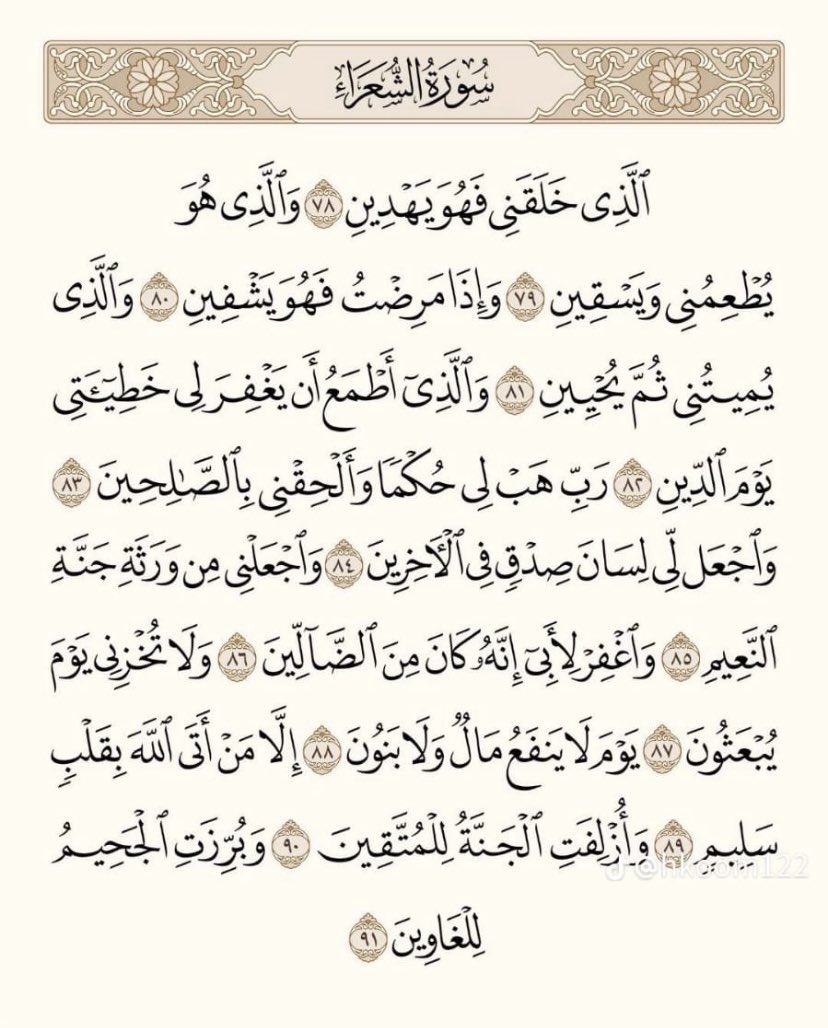 سُورَةُ الشُّعَرَاءِ
ٱلَّذِى خَلَقَنِى فَهُوَ يَهْدِينِ ٧٨ وَٱلَّذِى هُوَ
يُطْعِمُنِى وَيَسْقِينِ ٧٩ وَإِذَا مَرِضْتُ فَهُوَ يَشْفِينِ ٨٠ وَٱلَّذِى
يُمِيتُنِى ثُمَّ يُحْيِينِ ٨١ وَٱلَّذِىٓ أَطْمَعُ أَن يَغْفِرَ لِى خَطِيٓـَٔتِى
يَوْمَ ٱلدِّينِ ٨٢ رَبِّ هَبْ لِى حُكْمًا وَأَلْحِقْنِى بِٱلصَّـٰلِحِينَ ٨٣
وَٱجْعَل لِّى لِسَانَ صِدْقٍ فِى ٱلْـَٔاخِرِينَ ٨٤ وَٱجْعَلْنِى مِن وَرَثَةِ جَنَّةِ
ٱلنَّعِيمِ ٨٥ وَٱغْفِرْ لِأَبِىٓ إِنَّهُۥ كَانَ مِنَ ٱلضَّآلِّينَ ٨٦ وَلَا تُخْزِنِى يَوْمَ
يُبْعَثُونَ ٨٧ يَوْمَ لَا يَنفَعُ مَالٌ وَلَا بَنُونَ ٨٨ إِلَّا مَنْ أَتَى ٱللَّهَ بِقَلْبٍ
سَلِيمٍ ٨٩ وَأُزْلِفَتِ ٱلْجَنَّةُ لِلْمُتَّقِينَ ٩٠ وَبُرِّزَتِ ٱلْجَحِيمُ
@hkoom122
لِلْغَاوِينَ ٩١